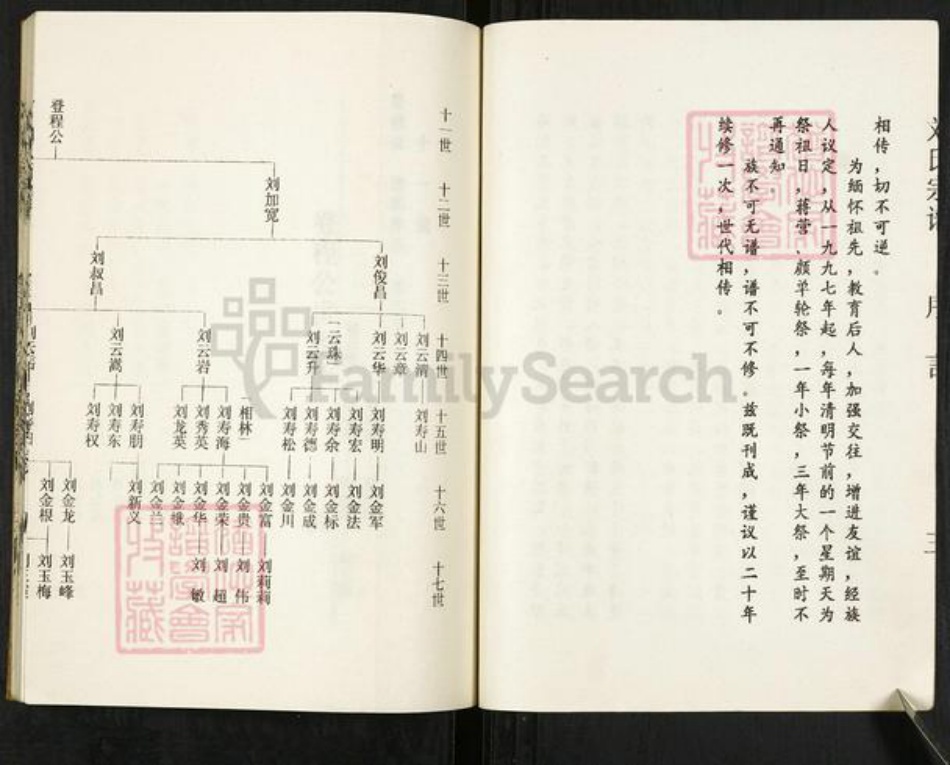 相传，切不可逆。
为缅怀祖先，教育后人，加强交往，增进友谊，经族
人议定，从一九九七年起，每年清明节前的一个星期天为
祭祖日，蒋营、颜单轮祭，一年小祭，三年大祭，至时不
再通知。
族不可无谱，谱不可不修。兹既刊成，谨议以二十年
续修一次，世代相传。
十一世
十二世
十三世
十四世
十五世
十六世
十七世
登程公
刘加宽
刘俊昌
刘叔昌
刘云清
刘云章
刘云华
云珠
刘云升
刘云岩
刘云嵩
刘寿山
刘寿明
刘寿宏
刘寿余
刘寿德
刘寿松
相林
刘寿海
刘秀英
刘龙英
刘寿朋
刘寿东
刘寿权
刘金军
刘金法
刘金标
刘金成
刘金川
刘金富
刘金贵
刘金荣
刘金华
刘金娥
刘金兰
刘新义
刘金龙
刘金根
刘莉莉
刘伟
刘超
刘敏
刘玉峰
刘玉梅
FamilySearch